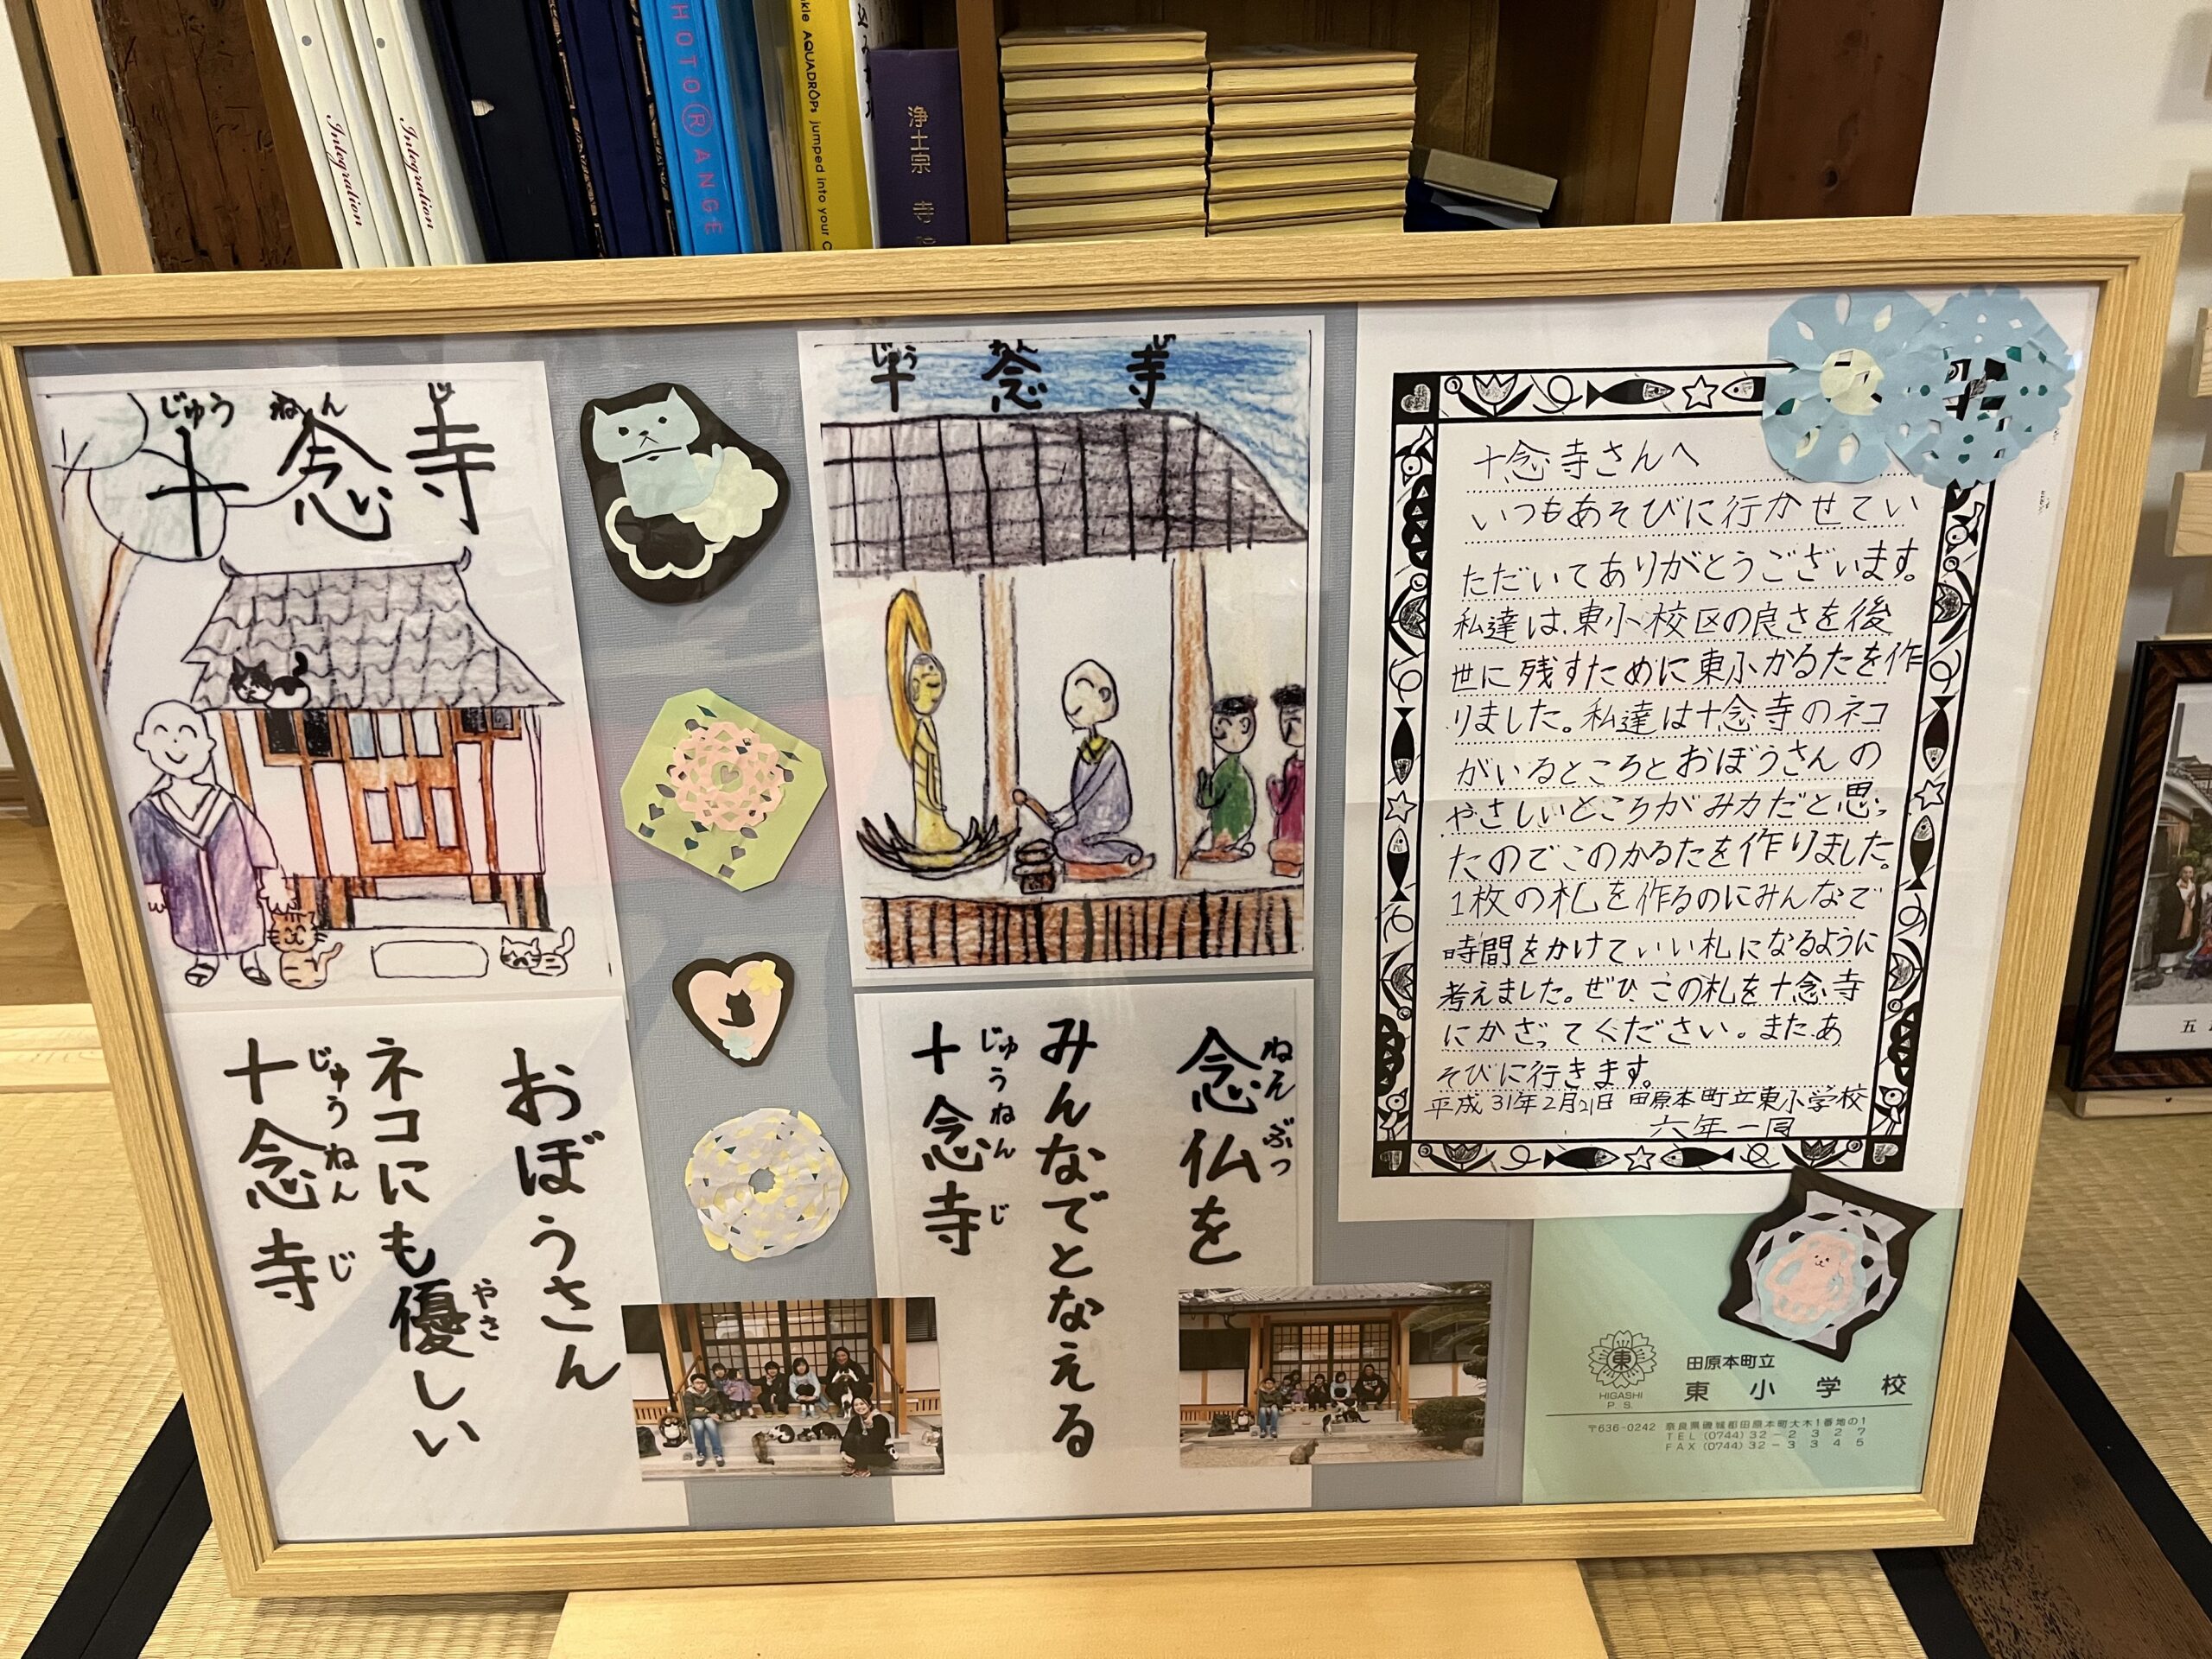 Integration
Integration
PHOTO R ANGE
AQUADROPs jumped into your
浄土宗 寺院
じゅう ねん じ
十 念 寺
おぼうさん
ネコにも優しい
やさ
十念寺
じゅうねん じ
じゅう ねん じ
十 念 寺
念仏を
ねんぶつ
みんなでとなえる
十念寺
じゅうねん じ
十念寺さんへ
いつもあそびに行かせてい
ただいてありがとうございます。
私達は、東小校区の良さを後
世に残すために東小かるたを作
りました。私達は十念寺のネコ
がいるところとおぼうさんの
やさしいところがみ力だと思っ
たのでこのかるたを作りました。
1枚の札を作るのにみんなで
時間をかけていい札になるように
考えました。ぜひ、この札を十念寺
にかざってください。また、あ
そびに行きます。
平成31年2月21日 田原本町立東小学校
六年一同
東
HIGASHI
P.S.
田原本町立
東小学校
〒636-0242 奈良県磯城郡田原本町大木1番地の1
TEL (0744) 32-2327
FAX (0744) 32-3345
五